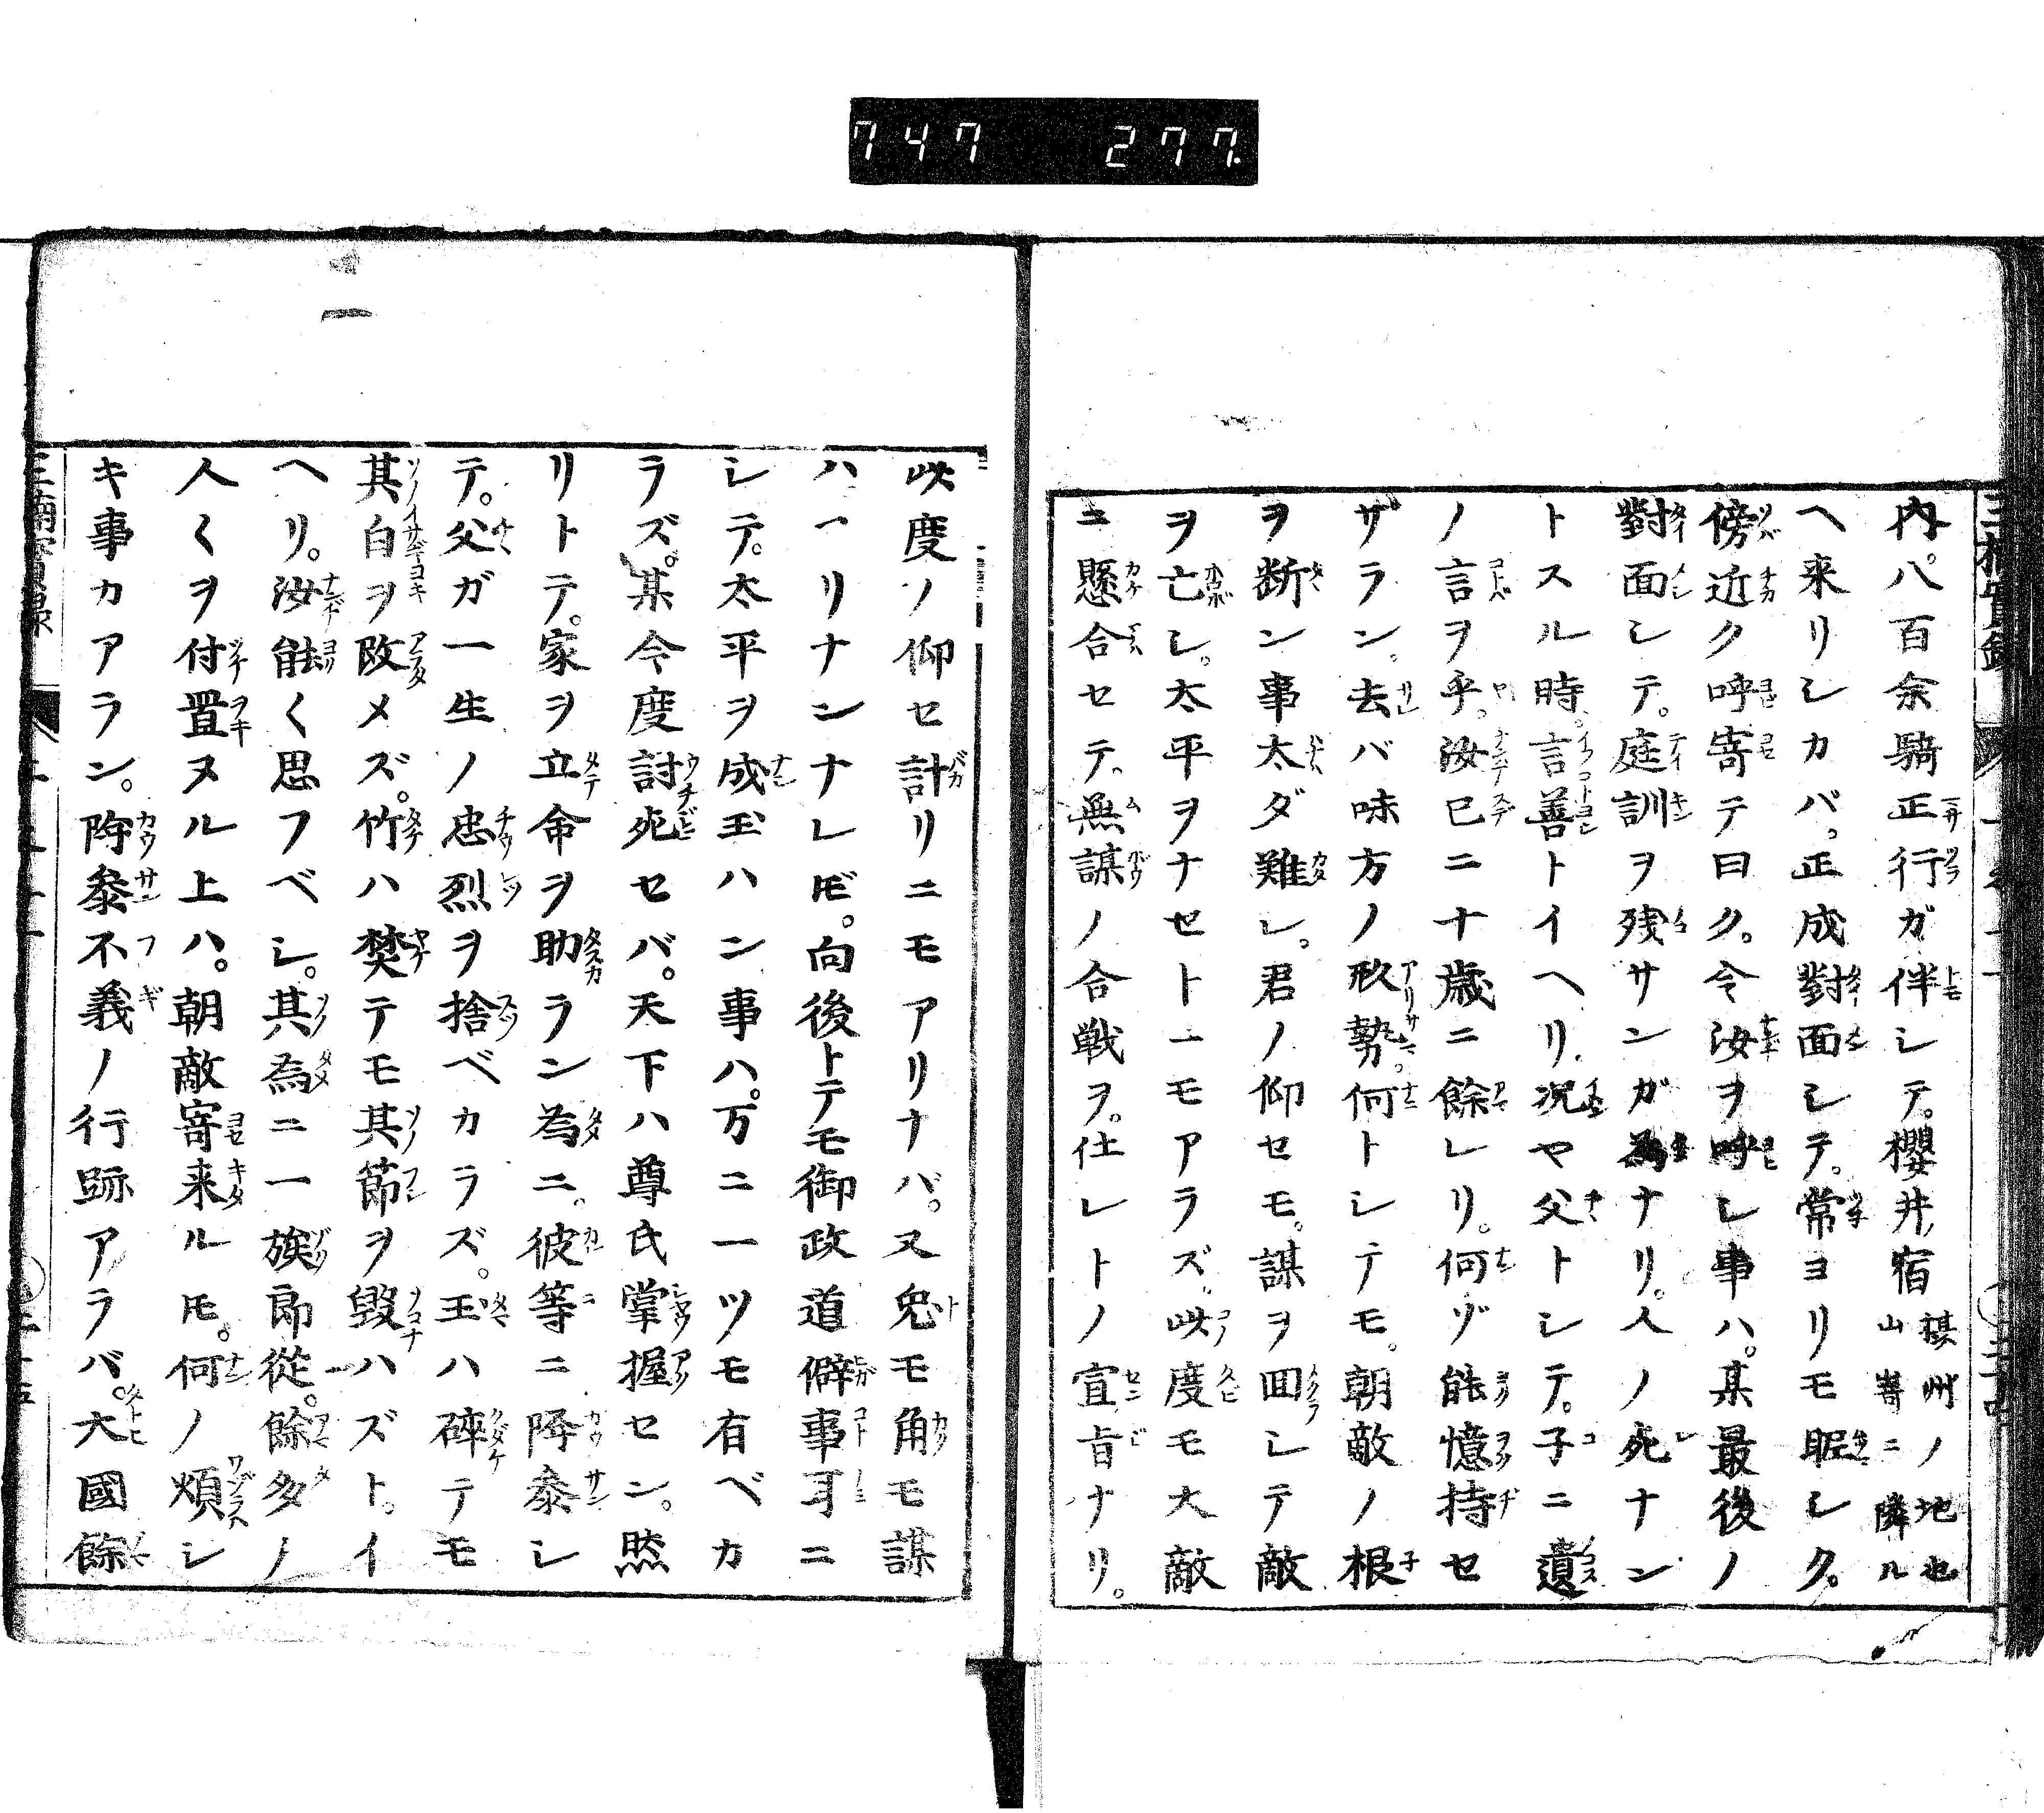 747 277.
内。八百余騎正行ガ伴シテ。櫻井ノ宿 摂州ノ地也山嵜ニ隣ル
ヘ来リシカバ。正成對面シテ。常ヨリモ昵シク。
傍近ク呼寄テ曰ク。今汝ヲ呼シ事ハ。某最後ノ
對面シテ。庭訓ヲ残サンガ為ナリ。人ノ死ナン
トスル時。言善トイヘリ。況ヤ父トシテ。子ニ遺
ノ言ヲ乎。汝已ニ十歳ニ餘レリ。何ゾ能憶持セ
ザラン。去バ味方ノ形勢。何トシテモ。朝敵ノ根
ヲ断ン事太ダ難シ。君ノ仰セモ。謀ヲ回シテ敵
ヲ亡シ。太平ヲナセト一モアラズ。此度モ大敵
ニ懸合セテ。無謀ノ合戦ヲ。仕レトノ宣旨ナリ。
此度ノ仰セ計リニモアリナバ。又兎モ角モ謀
ハヿリナンナレ𪜈。向後トテモ御政道僻事耳ニ
シテ。太平ヲ成玉ハン事ハ。万ニ一ツモ有ベカ
ラズ。某今度討死セバ。天下ハ尊氏掌握セン。然
リトテ。家ヲ立命ヲ助ラン為ニ。彼等ニ降参シ
テ。父ガ一生ノ忠烈ヲ捨ベカラズ。玉ハ碎テモ
其白ヲ改メズ。竹ハ焚テモ其節ヲ毀ハズト。イ
ヘリ。汝能〱思フベシ。其為ニ一族郎從。餘多ノ
人〱ヲ付置ヌル上ハ。朝敵寄来ル𪜈。何ノ煩シ
キ事カアラン。降参不義ノ行跡アラバ。大國餘